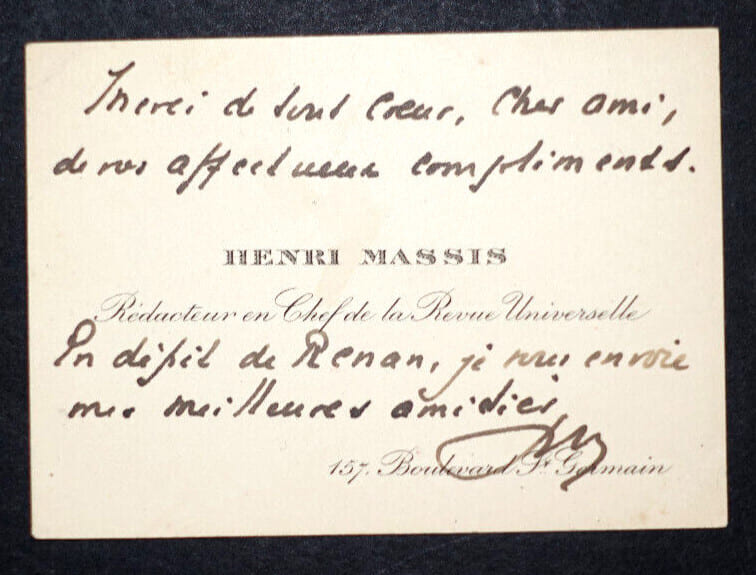 Merci de tout cœur, cher ami,
de vos affectueux compliments.
HENRI MASSIS
Rédacteur en Chef de la Revue Universelle
En dépit de Renan, je vous envoie
mes meilleures amitiés,
157, Boulevard St Germain